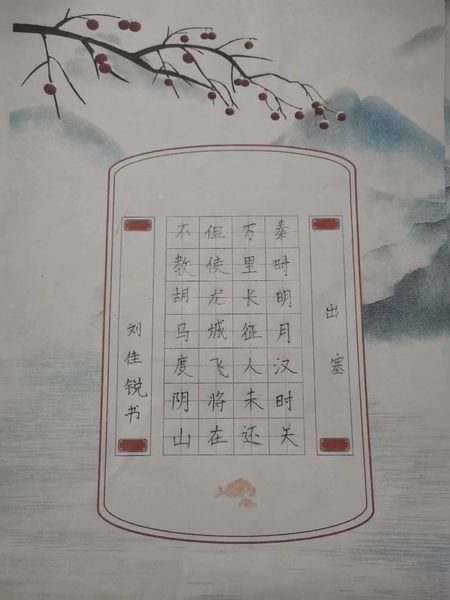 出塞
秦时明月汉时关
万里长征人未还
但使龙城飞将在
不教胡马度阴山
刘佳锐书